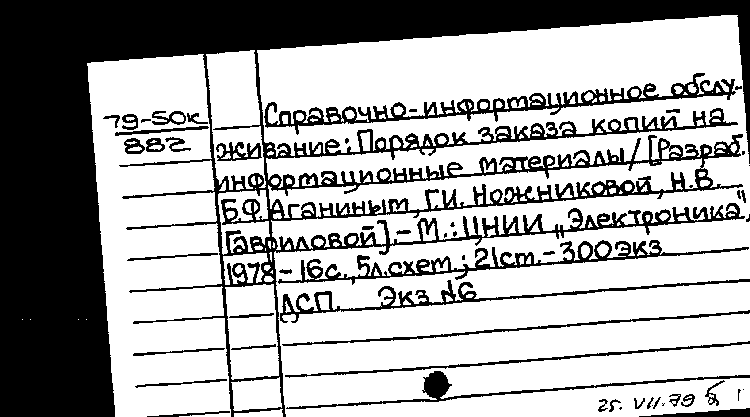 79-50к
882
Справочно-информационное обслу-
живание: Порядок заказа копий на
информационные материалы / [Разраб.
Б.Ф. Аганиным, Г.И. Ножниковой, Н.В.
Гавриловой]. - М.: ЦНИИ „Электроника",
1978 - 16с., 5л.схем.; 21см. - 300экз
ДСП. Экз №6
25. VII.79